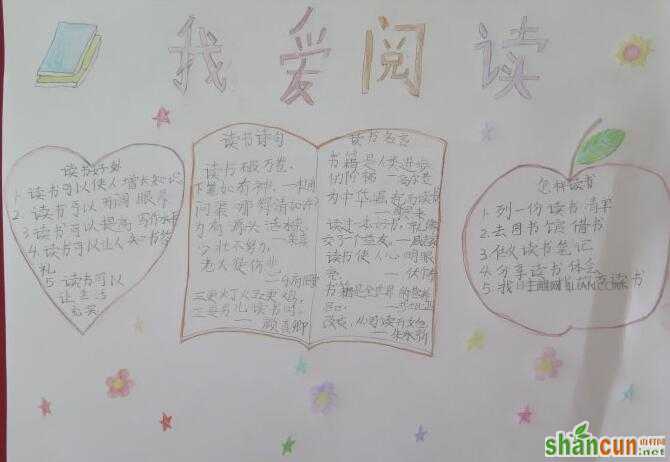 我爱阅读
读书好处
1 读书可以使人增长知识
2 读书可以开阔眼界
3 读书可以提高写作水平
4 读书可以让人
礼
5 读书可以
让生活
充实
读书诗句
读书破万卷,
下笔如有神.
问渠那得清如许
为有源头活水来
少壮不努力,
老大徒伤悲
三更灯火五更鸡,
读书时.
——颜真卿
读书名言
书籍是人类进步
的阶梯 ——高尔基
为中华崛起而读书
读过一本好书,
交了个益友.
读书使人心明眼
亮.
书籍是全世界的营养
品.
怎样读书
1. 列一份读书清单
2. 去图书馆借书
3. 做读书笔记
4. 分享读书体会
5. 找
读书
shancun
山村网
.net